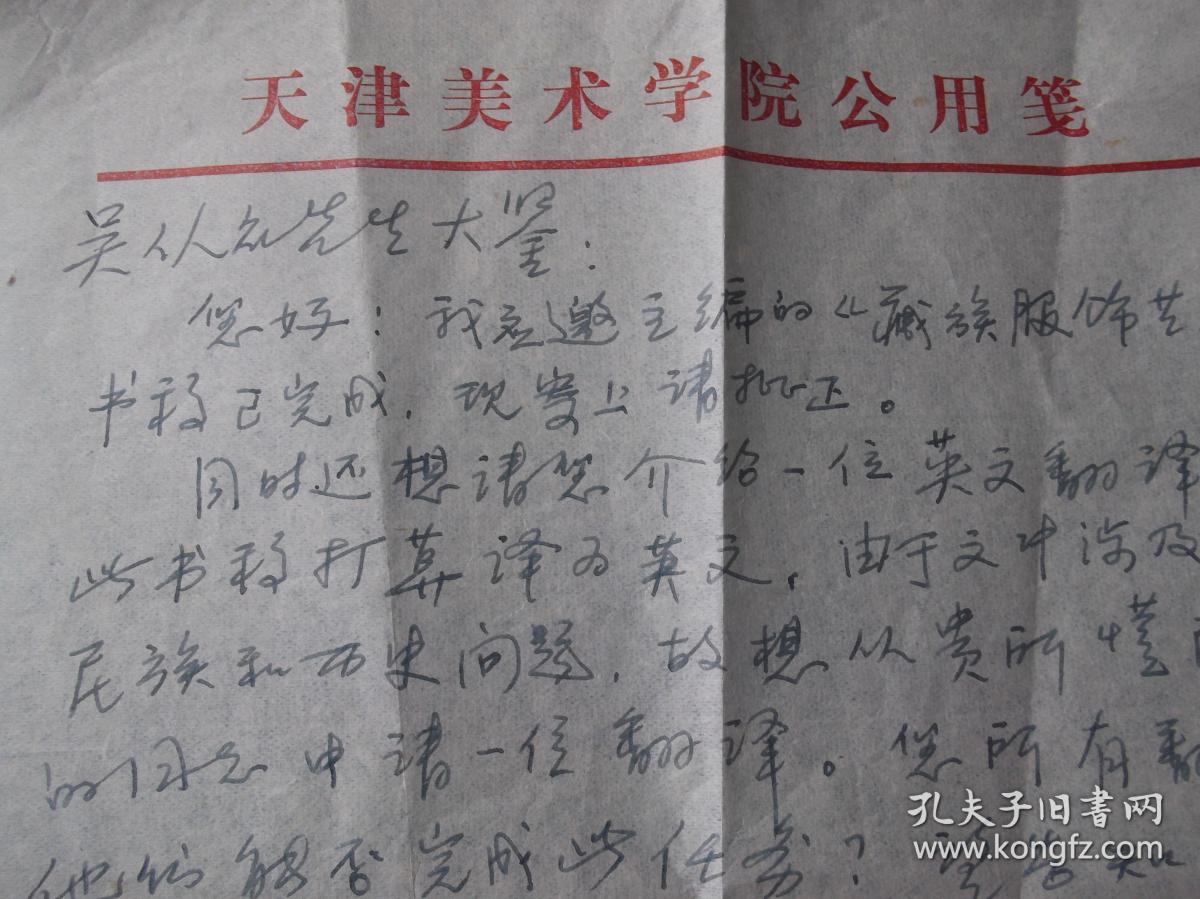 天津美术学院公用笺
吴从众先生大鉴：
您好：我应邀主编的《藏族服饰艺
书稿已完成，现寄上请批正。
同时还想请您介绍一位英文翻译
此书稿打算译为英文，由于文中涉及
民族和历史问题，故想从贵所懂
的同志中请一位翻译。您所有翻
他们能否完成此任务？请告知
孔夫子旧书网
www.kongfz.com